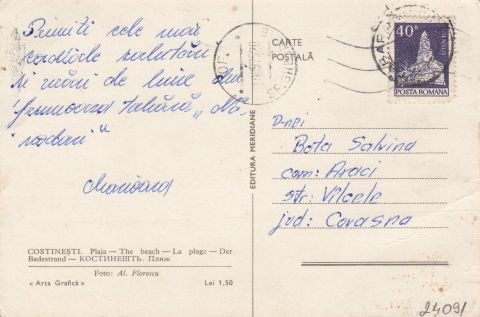 Primiți cele mai
cordiale salutări
și urări de bine din
frumoasa tabără „Nă-
vodari"
Marioara
CARTE
POSTALĂ
40 B
POSTA ROMANA
EDITURA MERIDIANE
D-nei
Bota Salvina
com: Araci
str: Vîlcele
jud: Covasna
COSTINEȘTI. Plaja — The beach — La plage — Der
Badestrand — КОСТИНЕШТЬ. Пляж
Foto: Al. Florescu
« Arta Grafică »
Lei 1,50
24091